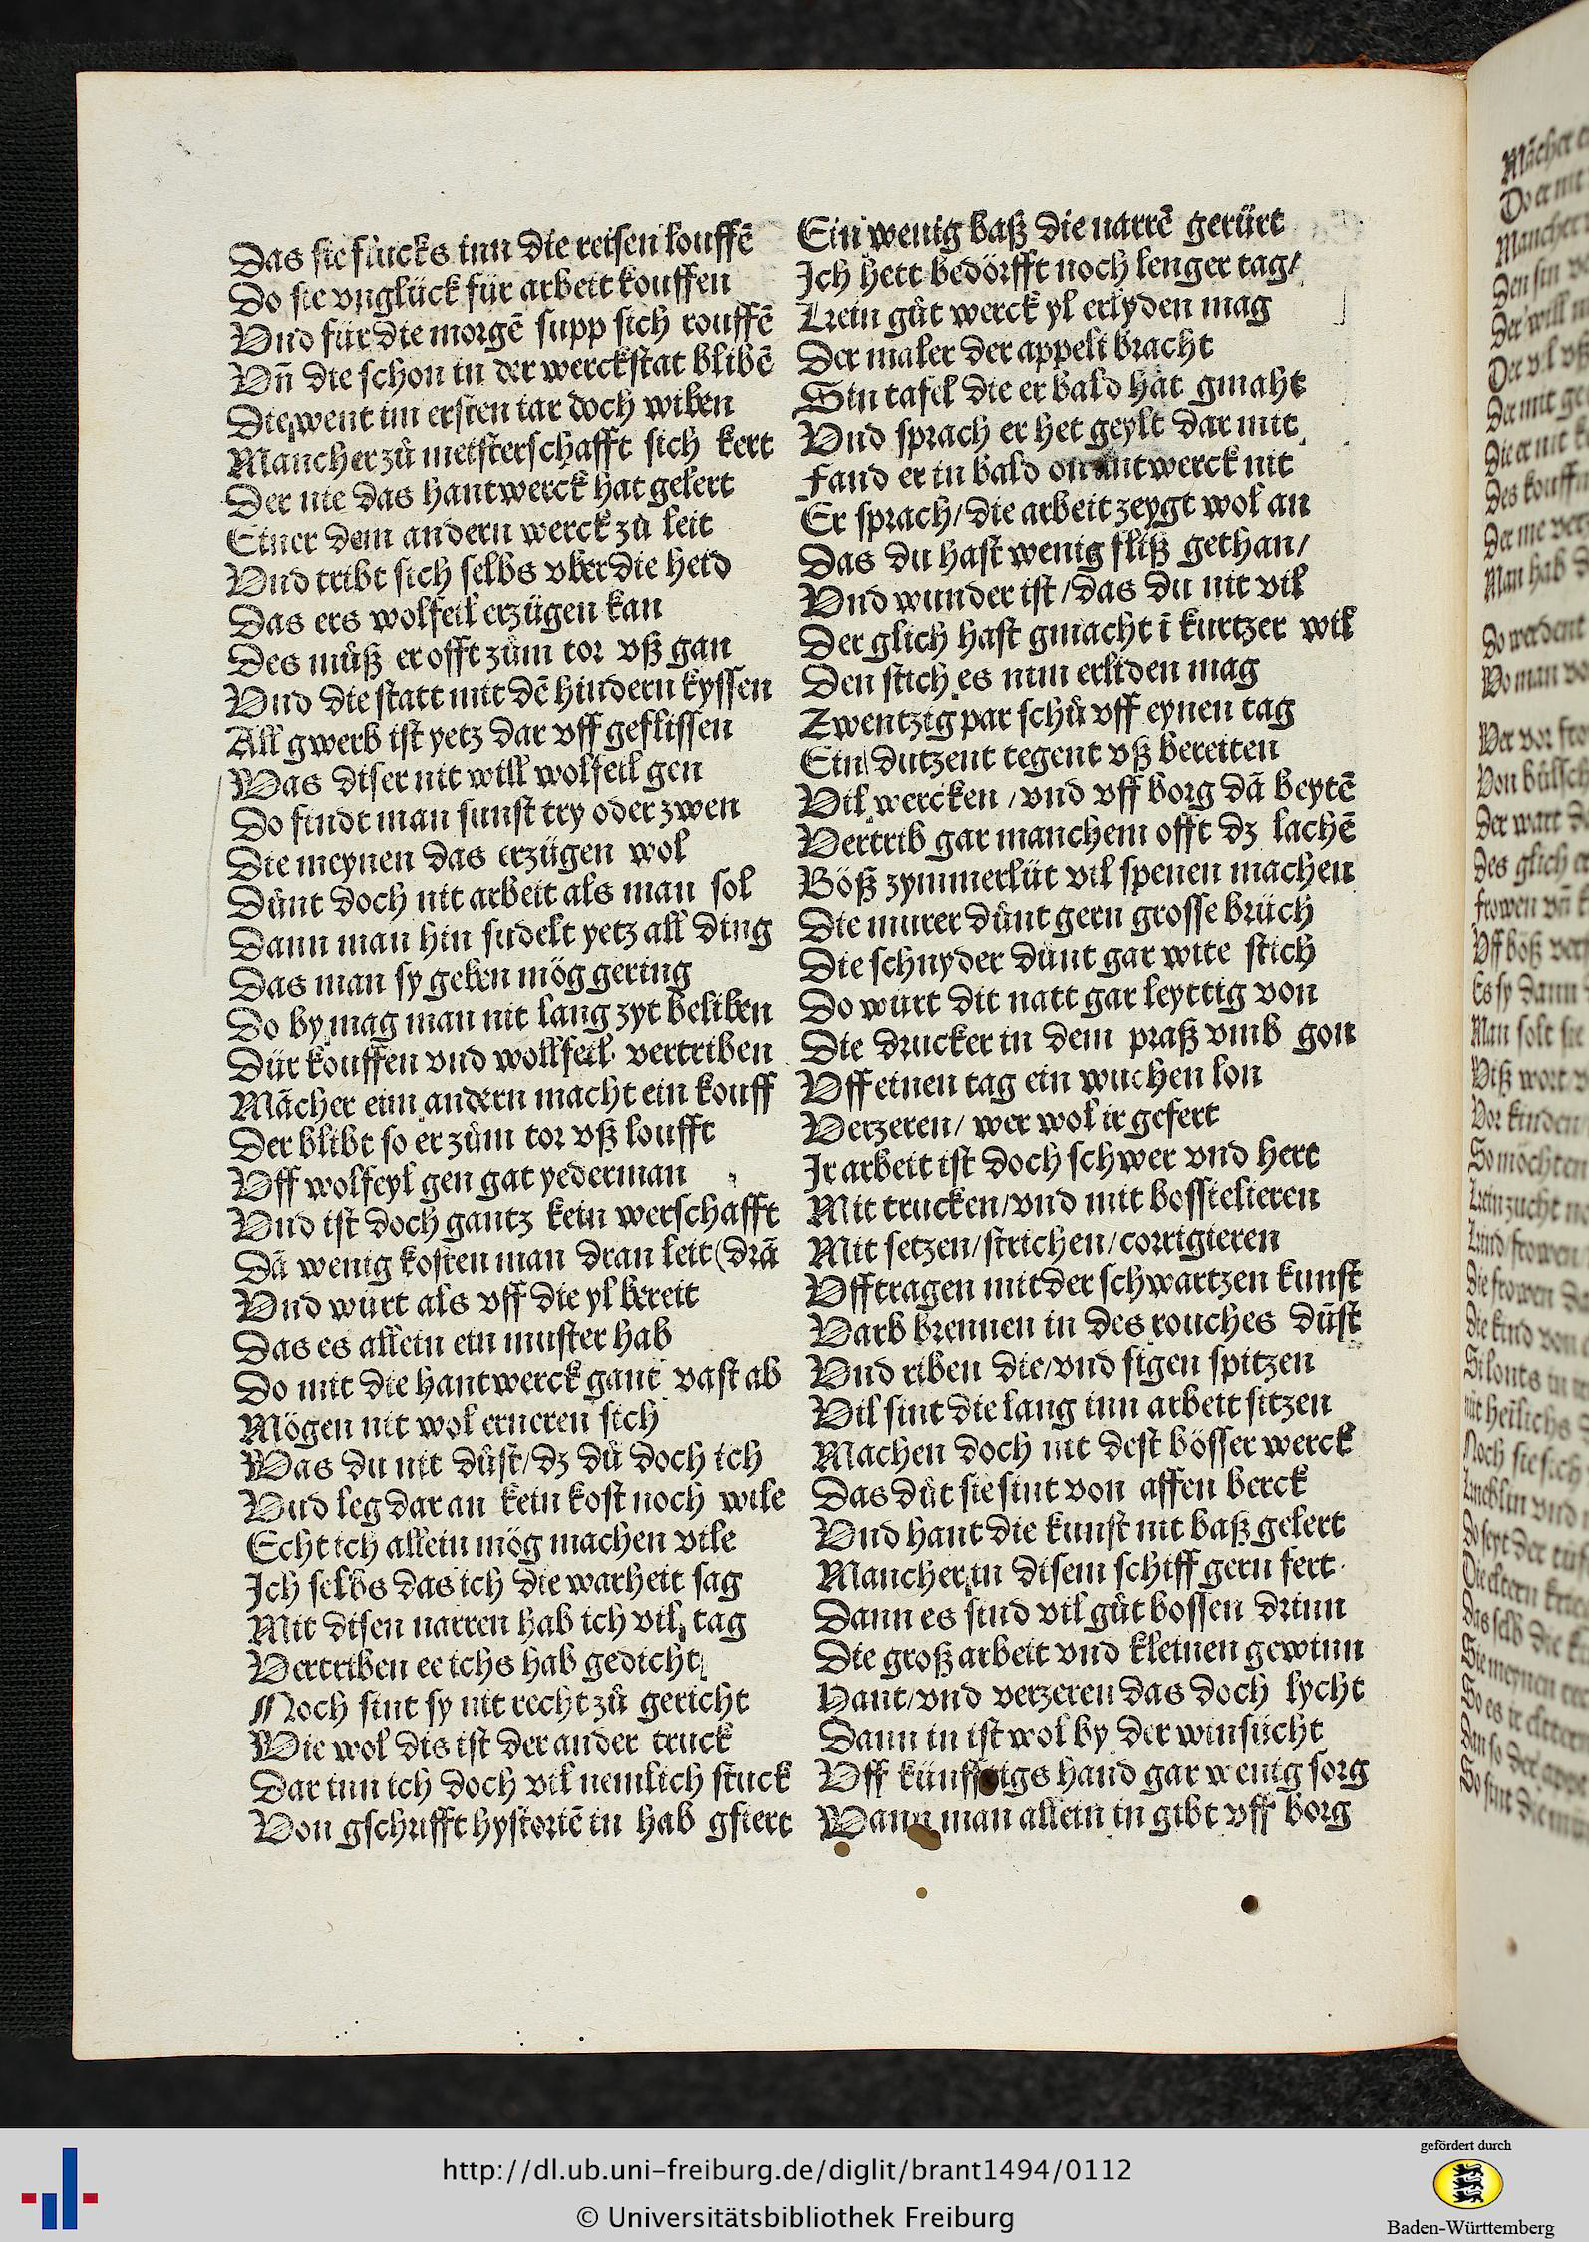 Das sie flucks inn die reisen louffē
Do sie vnglück für arbeit kouffen
Vnd für die morgē supp sich rouffē
Vn̄ die schon in der werckstat blibē
Die went im ersten iar doch wiben
Mancher zů meisterschafft sich kert
Der nie das hantwerck hat gelert
Einer dem andern werck zů leit
Vnd tribt sich selbs vber die heid
Das ers wolfeil erzügen kan
Des můß er offt zům tor vß gan
Vnd die statt mit dē hindern kyssen
All gwerb ist yetz dar vff geflissen
Was diser nit will wolfeil gen
Do findt man sunst try oder zwen
Die meynen das erzügen wol
Důnt doch nit arbeit als man sol
Dann man hin sudelt yetz all ding
Das man sy geben mög gering
Do by mag man nit lang zyt beliben
Dür kouffen vnd wollfeil vertriben
Mācher eim andern macht ein kouff
Der blibt so er zům tor vß loufft
Vff wolfeyl gen gat yederman
Vnd ist doch gantz kein werschafft
Dā wenig kosten man dran leit (drā
Vnd würt als vff die yl bereit
Das es allein ein muster hab
Do mit die hantwerck gant vast ab
Mögen nit wol erneren sich
Was du nit důst/dz dů doch ich
Vnd leg dar an kein kost noch wile
Echt ich allein mög machen vile
Ich selbs das ich die warheit sag
Mit disen narren hab ich vil tag
Vertriben ee ichs hab gedicht
Noch sint sy nit recht zů gericht
Wie wol dis ist der ander truck
Dar inn ich doch vil nemlich stuck
Von gschrifft hystoriē in hab gfiert
Ein wenig baß die narrē gerürt
Ich hett bedörfft noch lenger tag/
Kein gůt werck yl erlyden mag
Der maler der appeli bracht
Sin tafel die er bald hat gmaht
Vnd sprach er het geylt dar mit
Fand er in bald on antwerck nit
Er sprach/die arbeit zeygt wol an
Das du hast wenig fliß gethan/
Vnd wunder ist/das du nit vil
Der glich hast gmacht ī kurtzer wil
Den stich es nim erliden mag
Zwentzig par schů vff eynen tag
Ein dutzent tegent vß bereiten
Vil wercken/vnd vff borg dā beytē
Vertrib gar manchem offt dz lachē
Böß zymmerlüt vil spenen machen
Die murer důnt gern grosse brüch
Die schnyder dünt gar wite stich
Do würt dit natt gar leyttig von
Die drucker in dem praß vmb gon
Vff einen tag ein wuchen lon
Verzeren/wer wol ir gefert
Ir arbeit ist doch schwer vnd hert
Mit trucken/vnd mit bossielieren
Mit setzen/strichen/corrigieren
Vfftragen mit der schwartzen kunst
Varb brennen in des rouches dūst
Vnd riben die/vnd sigen spitzen
Vil sint die lang inn arbeit sitzen
Machen doch nit dest bösser werck
Das důt sie sint von affen berck
Vnd hant die kunst nit baß gelert
Mancher in disem schiff gern fert
Dann es sind vil gůt bossen drinn
Die groß arbeit vnd kleinen gewinn
Hant/vnd verzeren das doch lycht
Dann in ist wol by der winfücht
Vff künfftigs hand gar wenig sorg
Wann man allein in gibt vff borg
http://dl.ub.uni-freiburg.de/diglit/brant1494/0112
© Universitätsbibliothek Freiburg
gefördert durch
Baden-Württemberg